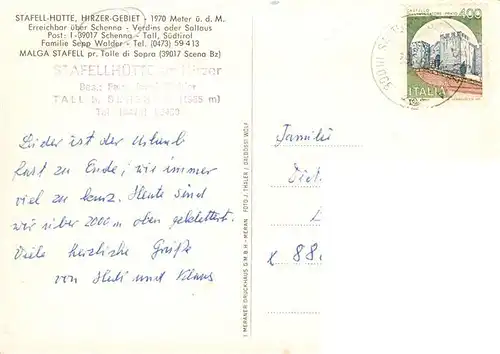 STAFELL-HÜTTE, HIRZER-GEBIET - 1970 Meter ü. d. M.
Erreichbar über Schenna - Verdins oder Saltaus
Post: I-39017 Schenna - Tall, Südtirol
Familie Sepp Walder - Tel. (0473) 59 413
MALGA STAFELL pr. Talle di Sopra (39017 Scena Bz)
STAFELLHÜTTE am Hirzer
Bes.: Fam.
TALL b.
Tel.
Leider ist der Urlaub
fast zu Ende, wie immer
viel zu kurz. Heute sind
wir über 2000 m oben geklettert.
Viele herzliche Grüße
von Hedi und Klaus
I MERANER DRUCKHAUS G.M.B.H. - MERAN FOTO J. THALER / GRLDDOSSI WOLF
CASTELLO
400
ITALIA
39010
Familie
88